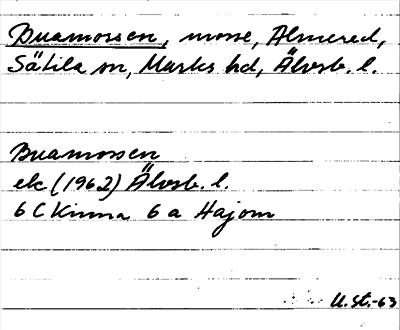 Buamossen, mosse, Almered,
Sätila sn, Marks hd, Älvsb. l.
Buamossen
ek (1962) Älvsb. l.
6 C Kinna 6 a Hajom
U. St. -63